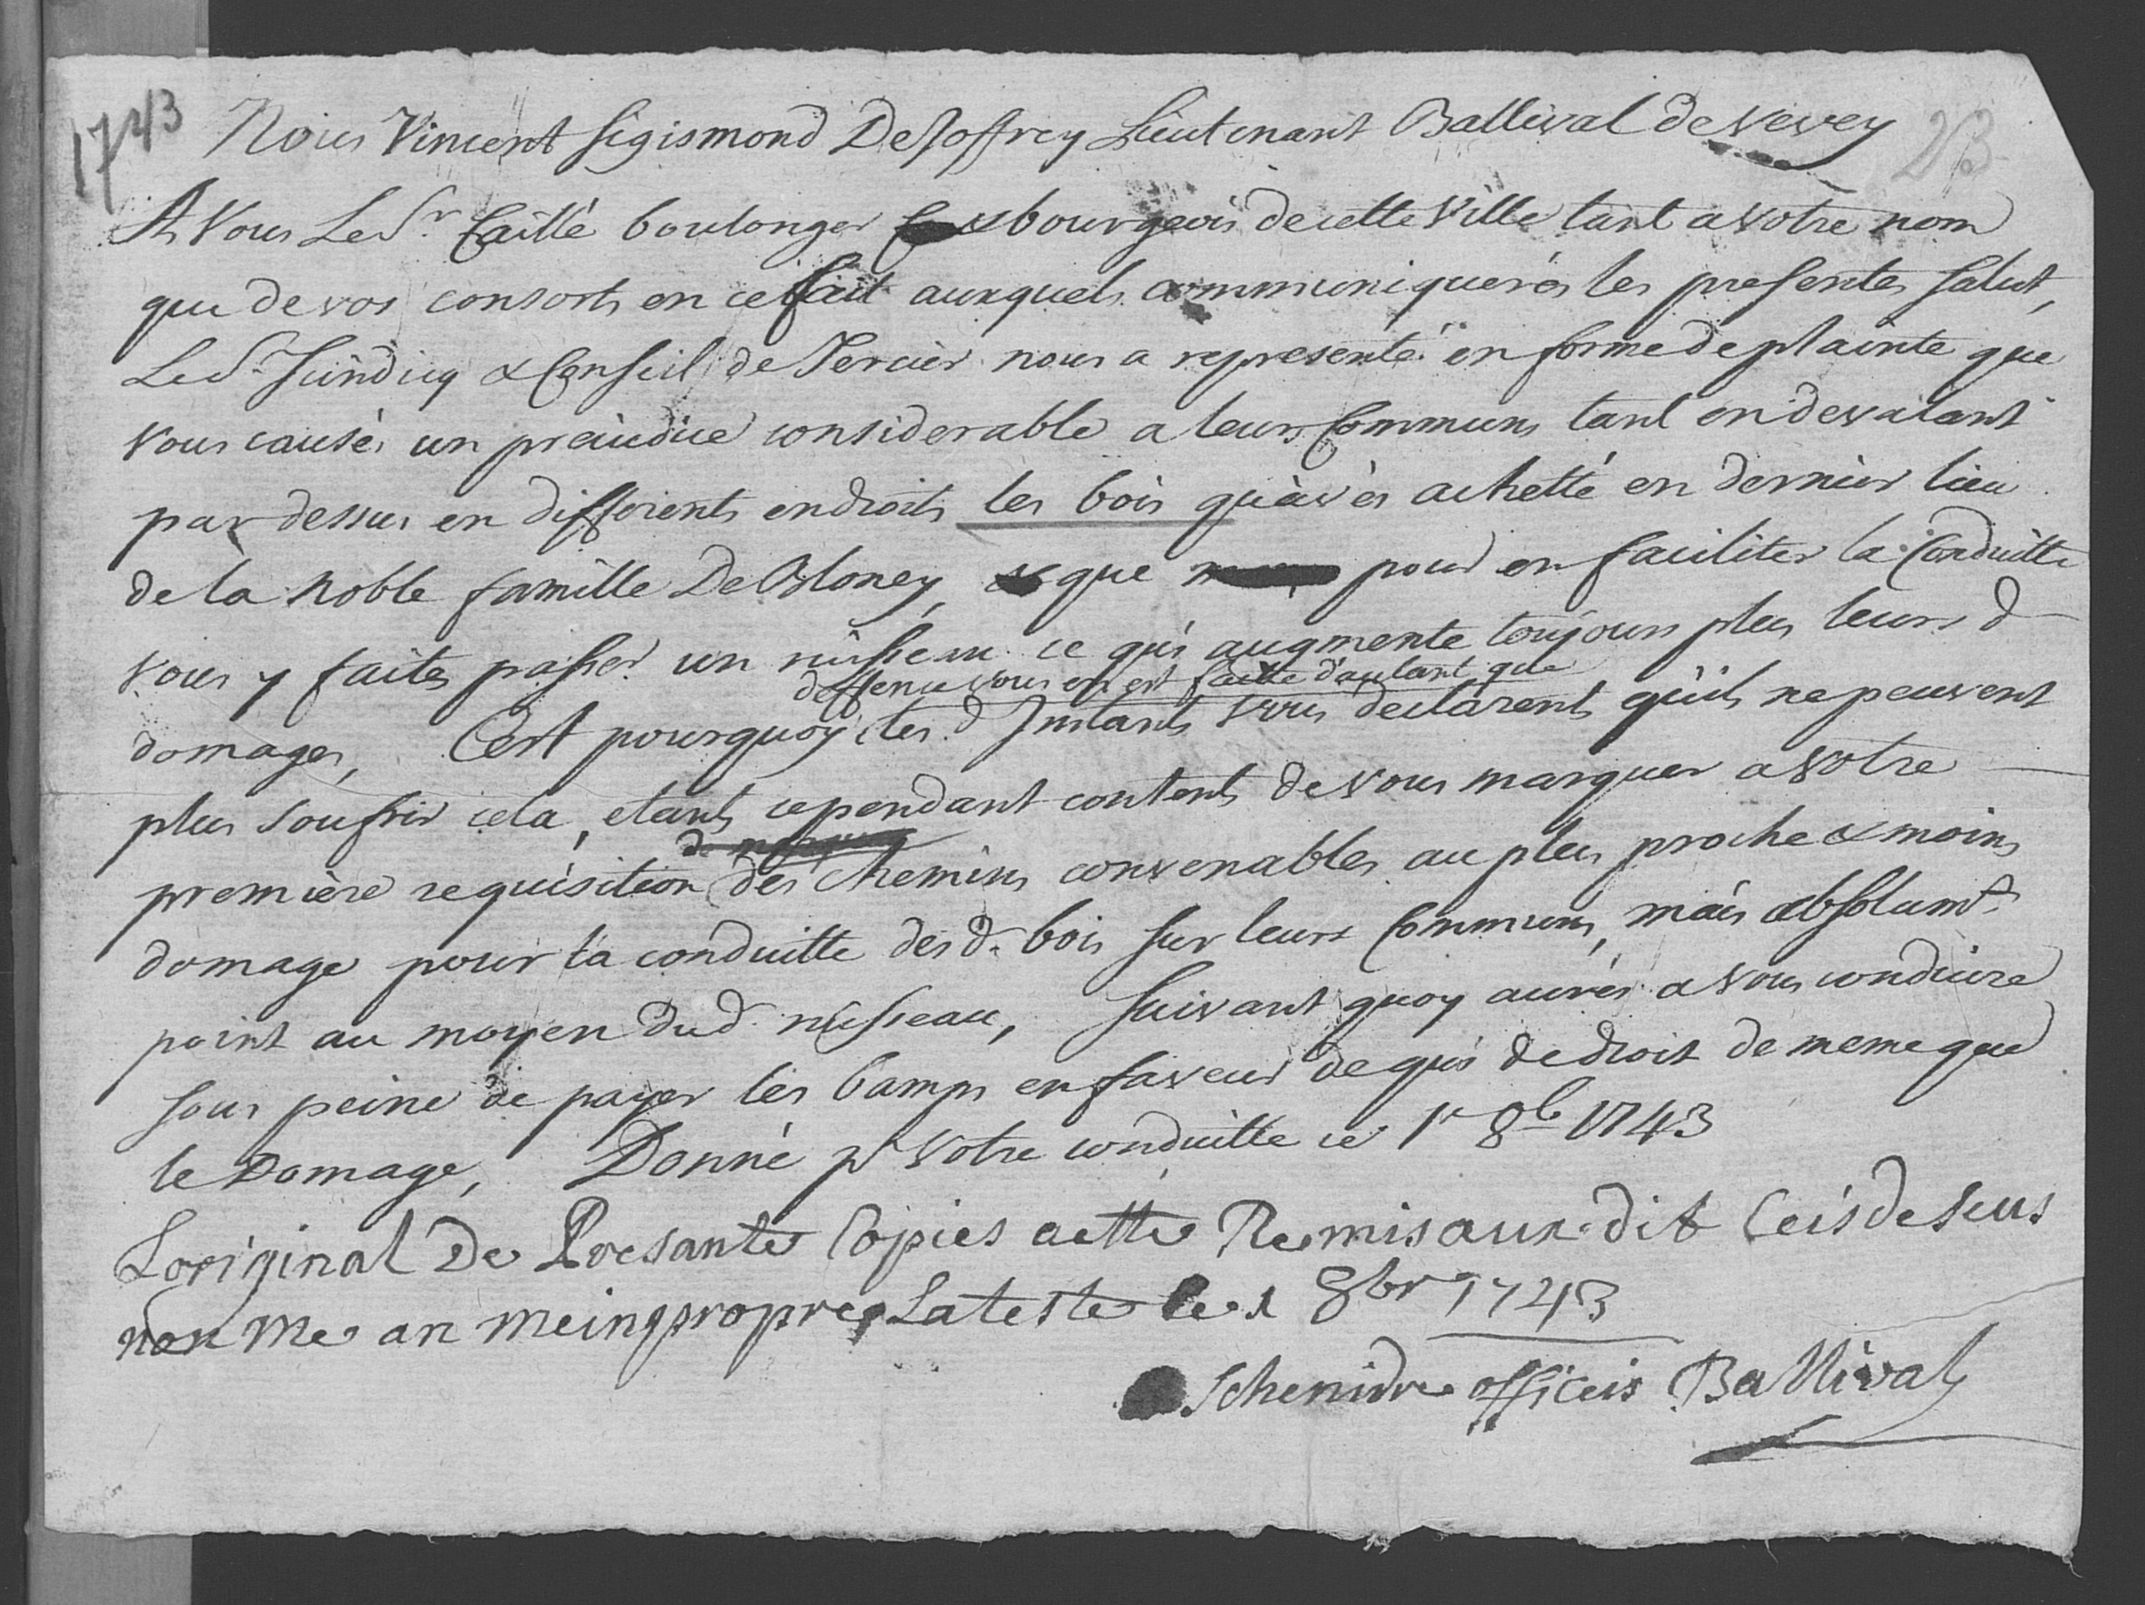 1743
23
Nous Vincent Sigismond DeJoffrey Lieutenant Ballival de Vevey
A Vous Le Sr. Caillé boulonger & bourgeois de cette Ville tant a votre nom
que de vos consorts en ce fait auxquels communiquerés les presentes salut,
Le Sr. Scindicq & Conseil de Tercier nous a representé en forme de plainte que
vous causés un preiudice considerable a leurs Communs tant en devalant
par dessus en differents endroits les bois qu'avés achetté en dernier lieu
de la Noble famille DeBloney, & que pour en faciliter la Conduitte
vous y faites passer un ruisseau ce qui augmente toujours plus leurs d
deffence vous en est faitte d'autant que
domages, C'est pourquoy les d. Instants vous declarent qu'ils ne peuvent
plus soufrir cela, etants cependant contents de vous marquer a votre
première requisition des Chemins convenables au plus proche & moins
domage pour la conduitte des d. bois sur leurs Communs, mais absolumt.
point au moyen dud. ruisseau, Suivant quoy aurés a vous conduire
sous peine de payer les bamps en faveur de qui de droit de meme que
le Domage, Donné pr votre conduitte ce 1r 8b 1743
Loriginal De Presante Copies aette Remis aux dit Ceis de seus
nonMe an Meing propre Lateste le 1 8br 1743
Schenidre officeis Ballival